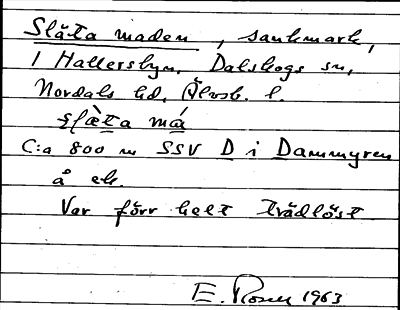 Släta maden, sankmark,
i Hallersbyn, Dalskogs sn,
Nordals hd, Älvsb. l.
slæ̀ta má
C:a 800 m SSV D i Dammyren
å ek.
Var förr helt trädlöst.
E. Rosén 1963